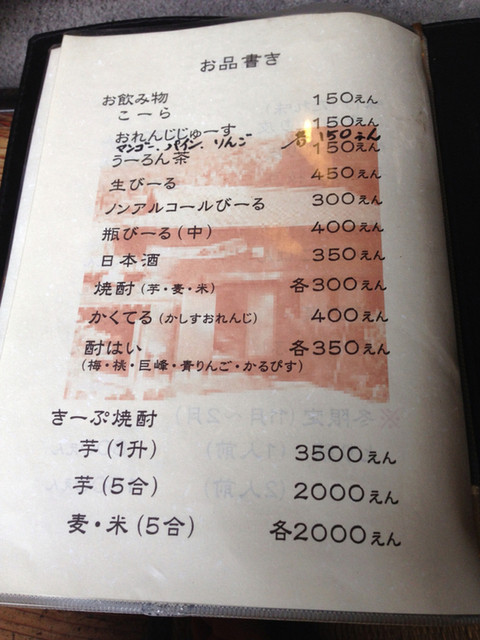 お品書き
お飲み物 150えん
こーら
おれんじじゅーす 150えん
マンゴー、パイン、りんご 各150えん
うーろん茶 150えん
生びーる 450えん
ノンアルコールびーる 300えん
瓶びーる(中) 400えん
日本酒 350えん
焼酎(芋・麦・米) 各300えん
かくてる(かしすおれんじ) 400えん
酎はい 各350えん
(梅・桃・巨峰・青りんご・かるぴす)
きーぷ焼酎
芋(1升) 3500えん
芋(5合) 2000えん
麦・米(5合) 各2000えん
※冬限定(11月～2月)
(1人前)
(2人前)